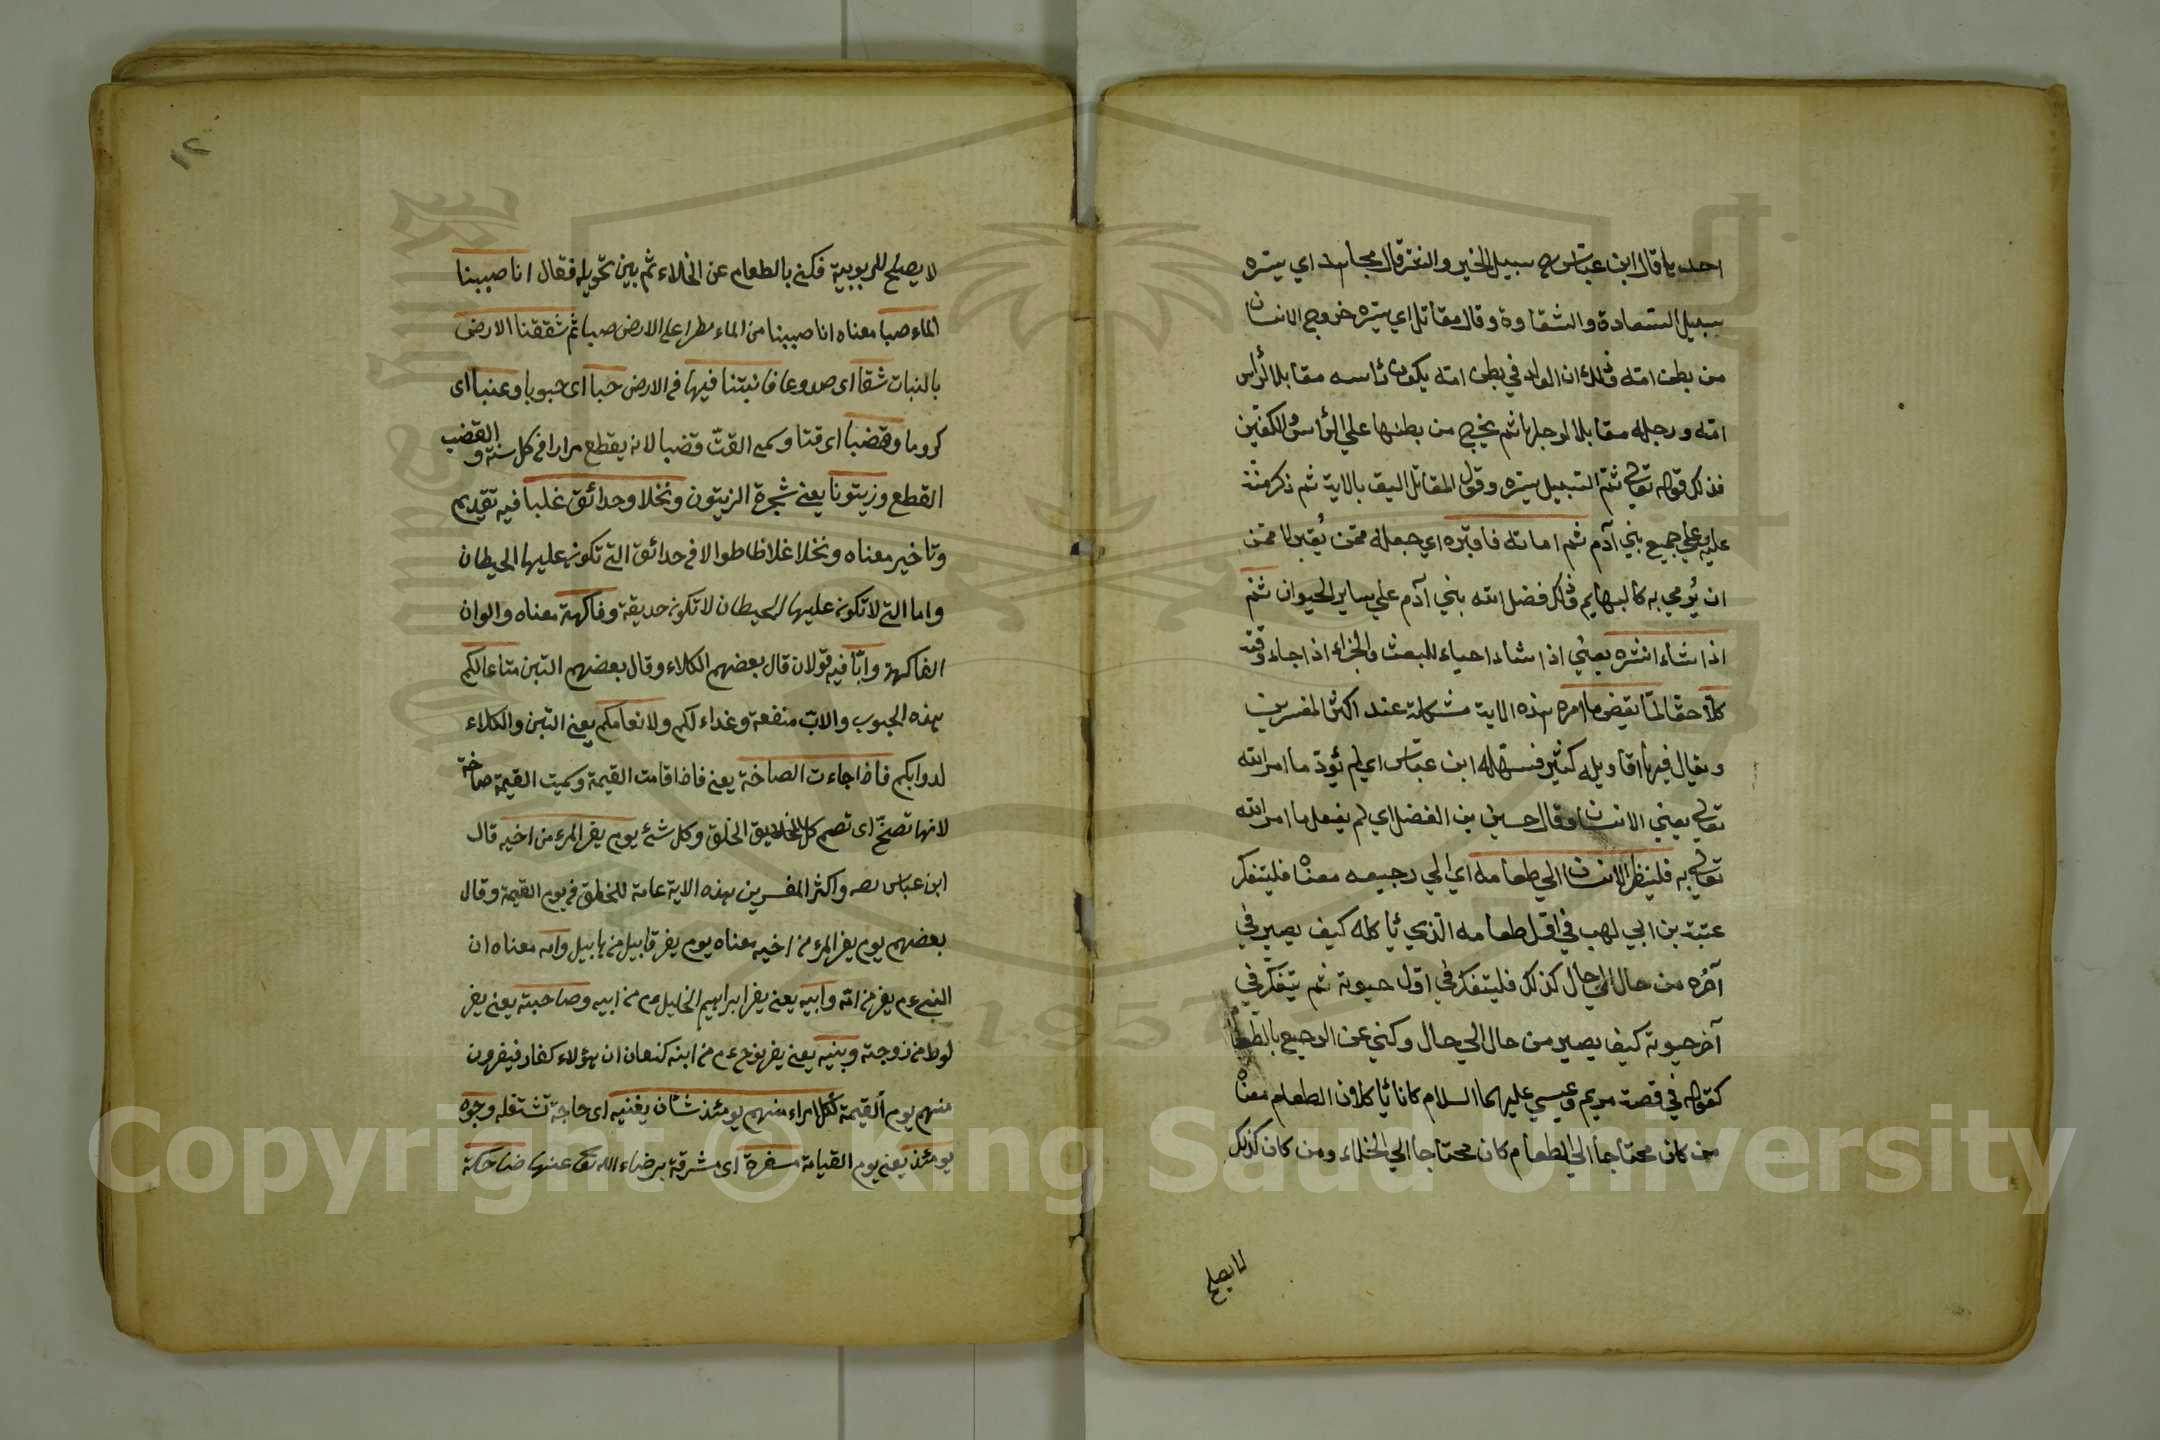 احدها قال ابن عباس رضه سبيل الخير والشر قال مجاهد اي يسّره
سبيل السّعادة والشقاوة وقال مقاتل اي يسّره خروج الانسان
من بطن امّه وذلك ان الولد في بطن امّه يكون رأسه مقابلا لرأس
امّه ورجله مقابلا لرجلها ثم يخرج من بطنها علي الرّأس والكفّين
فذلك قوله تعالي ثمّ السّبيل يسّره وقول المقاتل اليق بالاية ثم ذكر منّة
عليه وعلي جميع بني آدم ثم اماته فاقبره اي جعله ممّن يُقبر لا ممّن
ان يُرمي به كالبهايم وذكر فضل الله بني آدم علي ساير الحيوان ثمّ
اذا شاء انشره يعني اذا شاء احياء للبعث والجزاء اذا جاء وقته
كلّا حقا لمّا يقض ما امره هذه الاية مشكلة عند اكثر المفسرين
ويقال فيها اقاويل كثير فسّرها ابن عبّاس اي لم يؤدّ ما امر الله
تعالي يعني الانسان وقال حسين بن الفضل اي لم يفعل ما امر الله
تعالي به فلينظر الانسان الي طعامه اي الي رجيعه معناه فليتفكر
عتبة بن ابي لهب في اوّل طعامه الّذي يأكله كيف يصير في
آخره من حال الي حال كذلك فليتفكر في اوّل حيوته ثم يتفكّر في
آخر حيوته كيف يصير من حال الي حال وكني عن الرجيع بالطّعام
كقوله في قصة مريم وعيسي عليهما السلام كانا يأكلان الطعام معناه
من كان محتاجا الي الطعام كان محتاجا الي الخلاء ومن كان كذلك
لا يصلح
١٢
لا يصلح للربوبية فكني بالطعام عن الخلاء ثم بين تحويله فقال انا صببنا
الماء صبا معناه انا صببنا من الماء مطرا علي الارض صبا ثم شققنا الارض
بالنبات شقا اى صدوعا فانبتنا فيها في الارض حبا اى حبوبا وعنبا اى
كروما وقضبا اى قتا وسمي القتّ قضبا لانه يقطع مرارا في كل سنة و القضب
القطع وزيتونا يعني شجرة الزيتون ونخلا وحدائق غلبا فيه تقديم
وتاخير معناه ونخلا غلاظا طوالا في حدائق التي تكون عليها الحيطان
واما التي لا تكون عليها الحيطان لا تكون حديقة وفاكهة معناه والوان
الفاكهة وابّا فيه قولان قال بعضهم الكلاء وقال بعضهم التبن متاعا لكم
هذه الحبوب والابّ منفعة وغداء لكم ولانعامكم يعني التبن والكلاء
لدوابكم فاذا جاءت الصاخة يعني فاذا قامت القيمة وسميت القيمة صاخة
لانها تصخّ اى تصم كل الخلايق الخلق وكل شئ يوم يفر المرء من اخيه قال
ابن عباس رضه واكثر المفسرين هذه الاية عامة للخلق في يوم القيمة وقال
بعضهم يوم يفر المرء من اخيه معناه يوم يفر قابيل من هابيل وامه معناه ان
النبي عم يفر من امّه وابيه يعني يفر ابراهيم الخليل عم من ابيه وصاحبته يعني يفر
لوط من زوجته وبنيه يعني يفر نوح عم من ابنه كنعان ان هؤلاء كفار فيفرون
منهم يوم القيمة لكل امراء منهم يومئذ شان يغنيه اى حاجة تشتغله وجوه
يومئذ يعني يوم القيامة مسفرة اى مشرقة برضاء الله تعا عنها ضاحكة
Copyright © King Saud University
1957